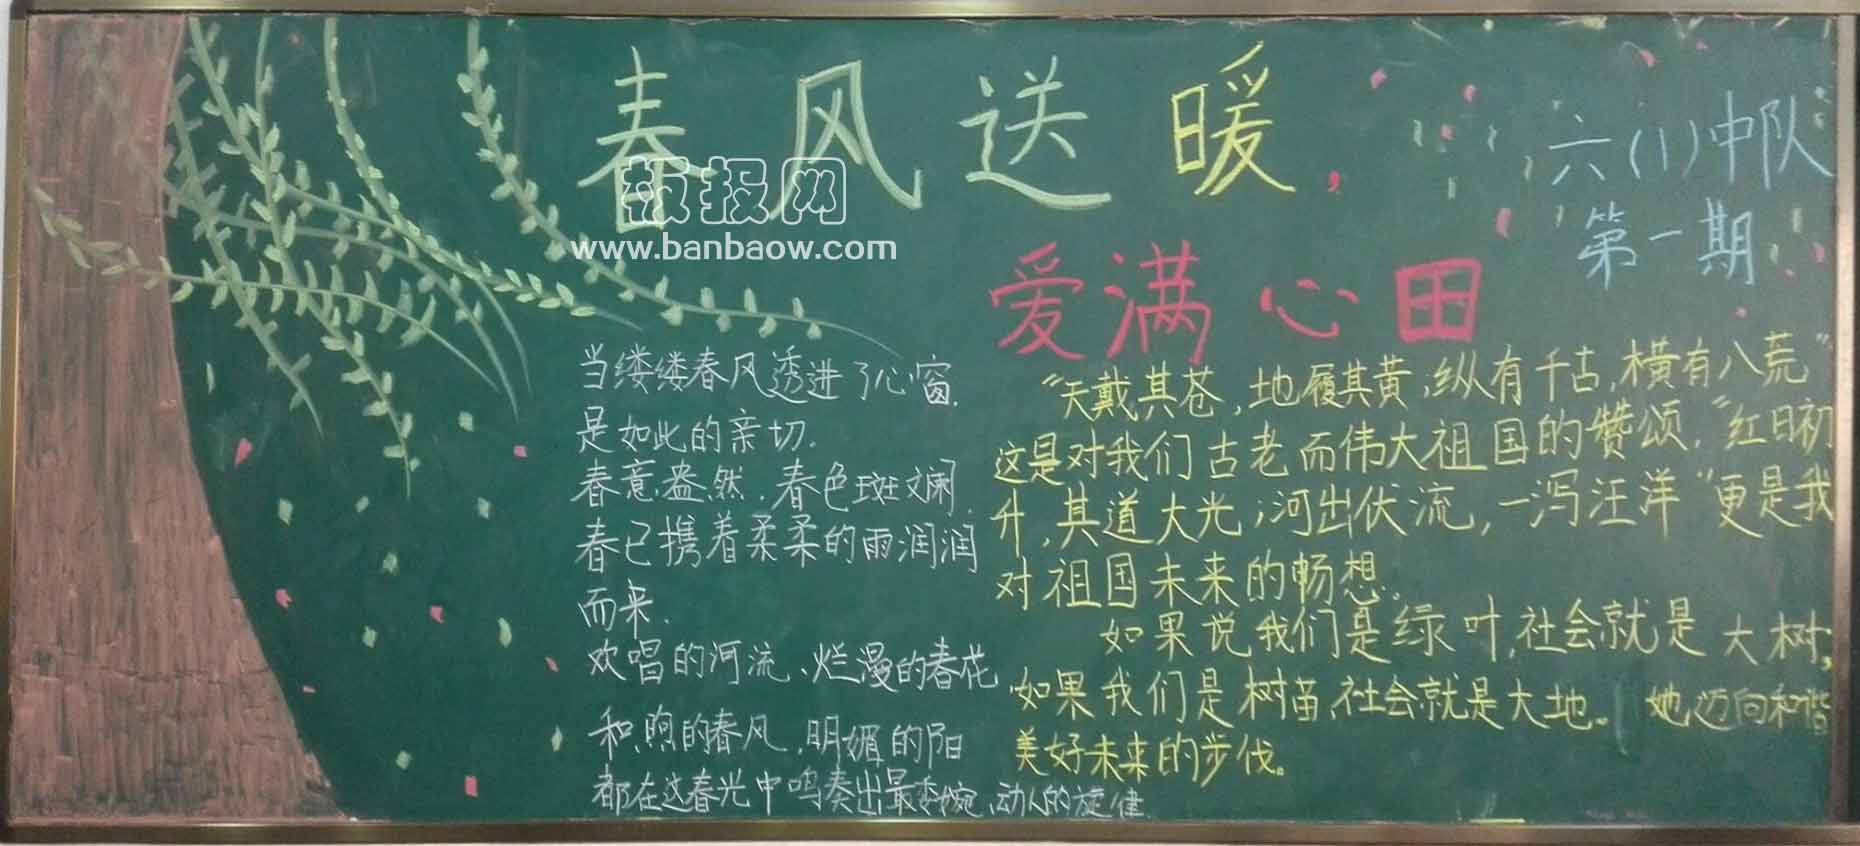 春风送暖，
爱满心田
六(1)中队
第一期
板报网
www.banbaow.com
当缕缕春风透进了心窗.
是如此的亲切.
春意盎然.春色斑斓.
春已携着柔柔的雨润润
而来.
欢唱的河流、烂漫的春花
和煦的春风,明媚的阳
都在这春光中鸣奏出最委婉、动人的旋律
“天戴其苍,地履其黄,纵有千古,横有八荒”
这是对我们古老而伟大祖国的赞颂.“红日初
升,其道大光;河出伏流,一泻汪洋”更是我
对祖国未来的畅想.
如果说我们是绿叶,社会就是大树;
如果我们是树苗,社会就是大地。她迈向和谐
美好未来的步伐。